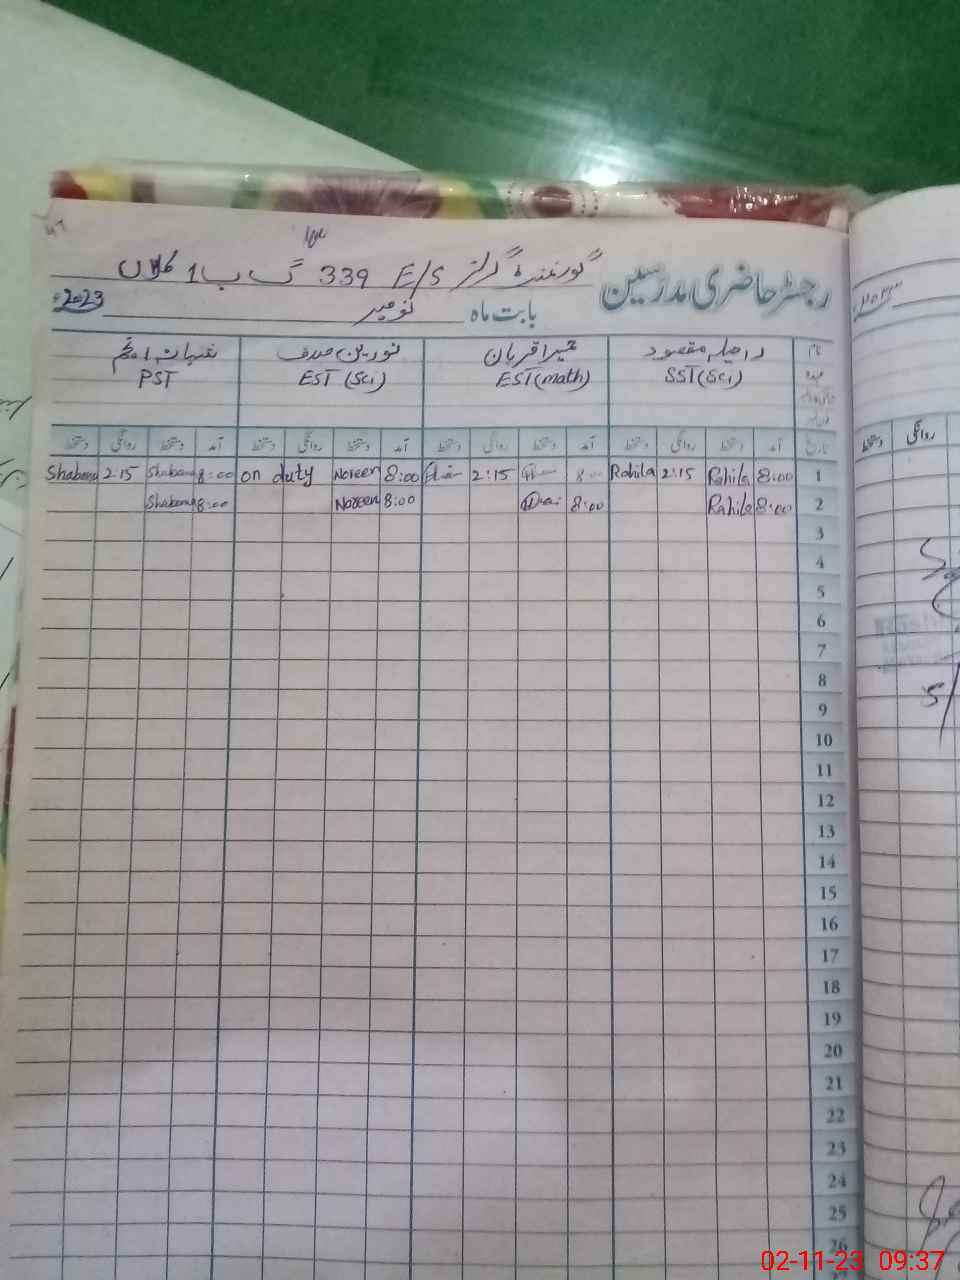 رجسٹر حاضری مدرسین گورنمنٹ گرلز E/S 339 گ ب 1 کلاں
بابت ماہ نومبر 2023ء
نام راحیلہ مقصود حمیرا قربان نورین صدف شبانہ انجم
عہدہ SST (Sci) EST (math) EST (Sci) PST
تاریخ آمد دستخط روانگی دستخط آمد دستخط روانگی دستخط آمد دستخط روانگی دستخط آمد دستخط روانگی دستخط
1 8:00 Rahila 2:15 Rahila 8:00 2:15 8:00 Noreen on duty 8:00 Shabana 2:15 Shabana
2 8:00 Rahila 8:00 8:00 Noreen 8:00 Shabana
3
4
5
6
7
8
9
10
11
12
13
14
15
16
17
18
19
20
21
22
23
24
25
26
روانگی دستخط
02-11-23 09:37